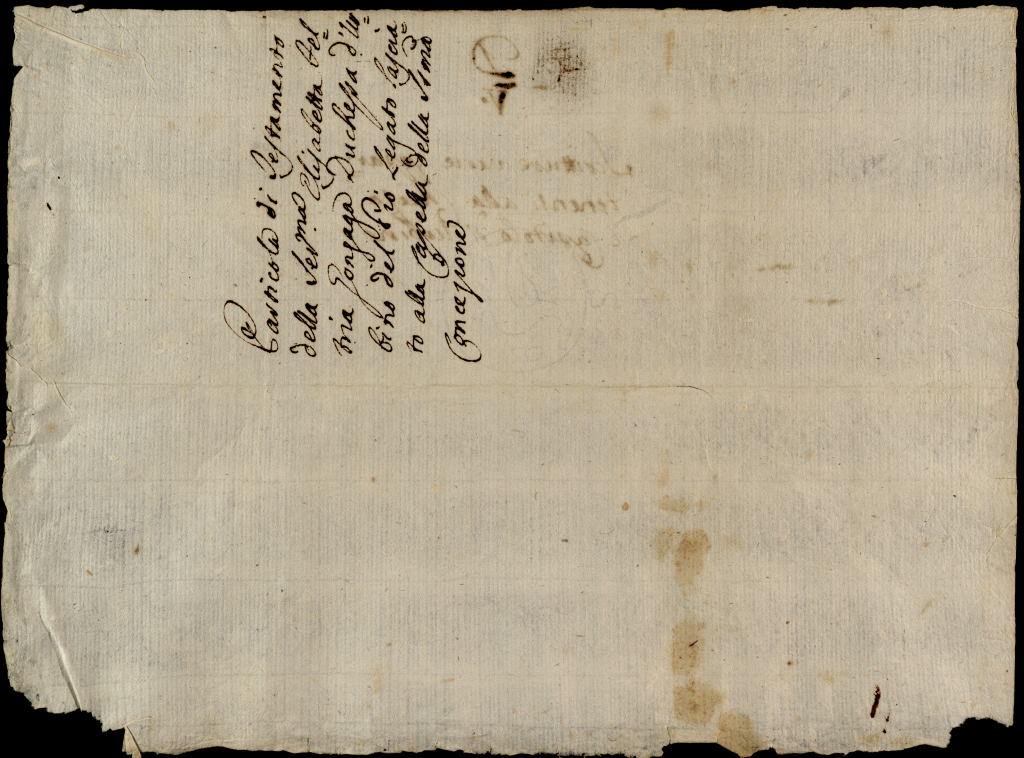 Particola di Testamento
della Ser.ma Elisabetta Fel=
tria Gonzaga Duchessa d'Ur=
bino del Pio Legato lascia=
to alla Capella della S.ma
Concezione